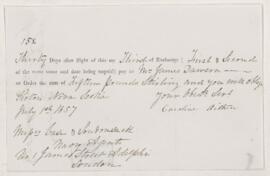 15£
Thirty Days after Sight of this my Third of Exchange First & Second
of the same tenor and date being unpaid pay to Mr James Dawson
or Order the sum of Fifteen Pounds Sterling and you will oblige
Pictou Nova Scotia your Obedt Servt
July 1st 1857 Caroline
Messrs Case &
Navy Agents
No 1 James Street Adelphi
London